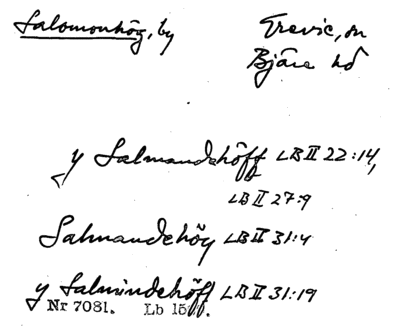 Salomonhög, by Grevie, sn
Bjäre hd
y Salmandehöff LB II 22:14,
LB II 27:9
Salmandehöy LB II 31:4
y Salmindehöff LB II 31:19
Nr 7081. Lb